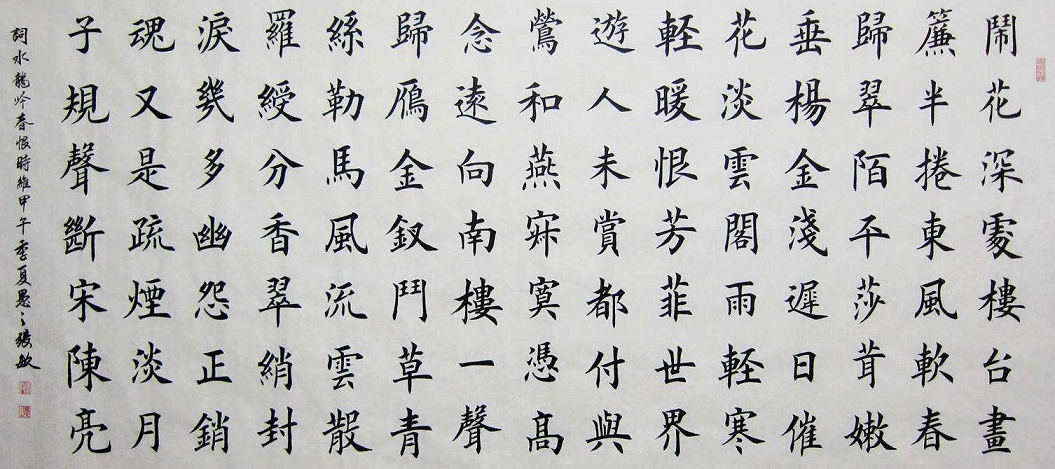 鬧花深處樓台畫
簾半捲東風軟春
歸翠陌平莎茸嫩
垂楊金淺遲日催
花淡雲閣雨軽寒
軽暖恨芳菲世界
遊人未賞都付與
鶯和燕寂寞憑高
念遠向南樓一聲
歸鴈金釵鬥草青
絲勒馬風流雲散
羅綬分香翠綃封
淚幾多幽怨正銷
魂又是疏煙淡月
子規聲斷宋陳亮
詞水龍吟春恨時維甲午季夏張敏